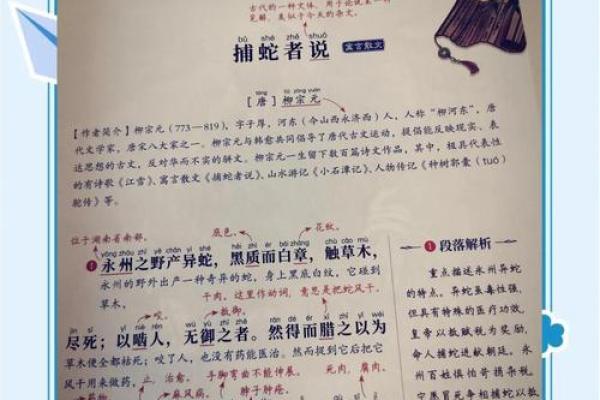 古代的一种文体，用于论说某一种
见解，类似于今天的杂文。
bǔ shé zhě shuō
捕蛇者说
寓言散文
táng liǔ zōng yuán
[唐] 柳宗元
【作者简介】柳宗元（773—819），字子厚，河东（今山西永济西）人，人称“柳河东”，唐
代文学家，唐宋八大家之一。柳宗元与韩愈共同倡导了唐代古文运动，提倡能反映现实、表
达思想的古文，反对华而不实的骈文。柳宗元一生留下数百篇诗文作品，其中，极具代表性
的有诗歌《江雪》、寓言散文《捕蛇者说》、山水游记《小石潭记》、人物传记《种树郭橐（tuó）
驼传》等。
位于湖南省南部。
底色。
花纹。
yǒng zhōu zhī yě chǎn yì shé hēi zhì ér bái zhāng chù cǎo mù
❶永州之野产异蛇，黑质而白章，触草木，
永州的野外出产一种奇异的蛇，身上黑底白纹，它碰到
草木，
干肉。这里作动词，意思是把蛇风干。
咬。
抵御。
jìn sǐ yǐ niè rén wú yù zhī zhě rán dé ér xī zhī yǐ wéi
尽死；以啮人，无御之者。然得而腊之以为
草木便全都枯死；咬了人，也没有药能医治。然而捉到它后把它
风干用来做药，
止、治愈。
手脚弯曲不能伸展。
死肉，腐肉。
药物。
麻风病。
脖子肿痛。
❶段落解析
重点描述永州异蛇
的特点。异蛇虽毒性强，
但具有特殊的医疗功效，
皇帝以赦赋税为奖励，
命人捕蛇进献朝廷。永
州百姓惧怕苛捐杂税，
宁愿冒死争相捕蛇以放